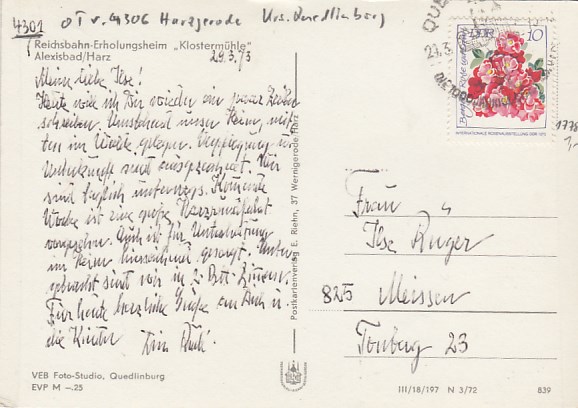 4301 OT v. 4306 Harzgerode Krs. Quedlinburg
Reichsbahn-Erholungsheim „Klostermühle"
Alexisbad/Harz
29.3.73
Meine liebe Ilse!
Heute will ich Dir wieder ein paar Zeilen
schreiben. Umstehend unser Heim, mit-
ten im Walde gelegen. Verpflegung u.
Unterkunft sind ausgezeichnet. Wir
sind täglich unterwegs. Kommende
Woche ist eine große Harzrundfahrt
vorgesehen. Auch ist für Unterhaltung
im Heim hinreichend gesorgt. Unter-
gebracht sind wir in 2 Bett-Zimmern.
Für heute herzliche Grüße an Dich u.
die Kinder
Postkartenverlag E. Riehn, 37 Wernigerode/Harz
VEB Foto-Studio, Quedlinburg
EVP M –.25
III/18/197 N 3/72
839
DDR 10
INTERNATIONALE ROSENAUSSTELLUNG 1972
1778
Frau
Ilse Rüger
825 Meissen
Tonberg 23